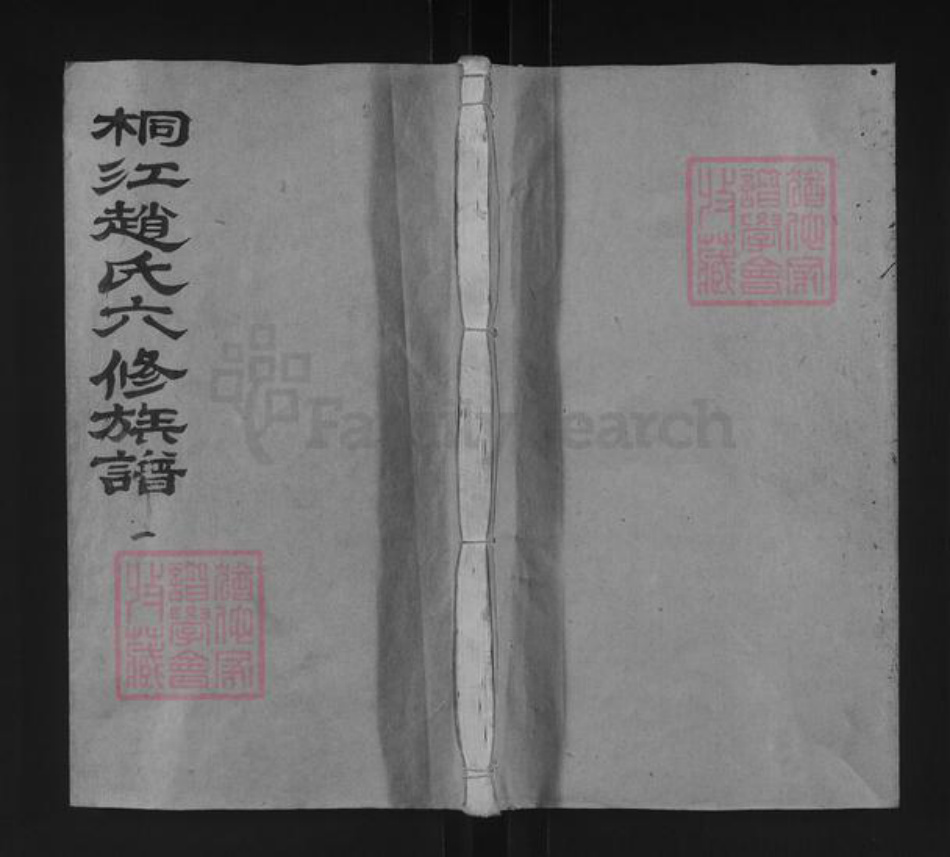 桐江趙氏六修族譜
一
猶他家
譜學會
收藏
FamilySearch
猶他家
譜學會
收藏